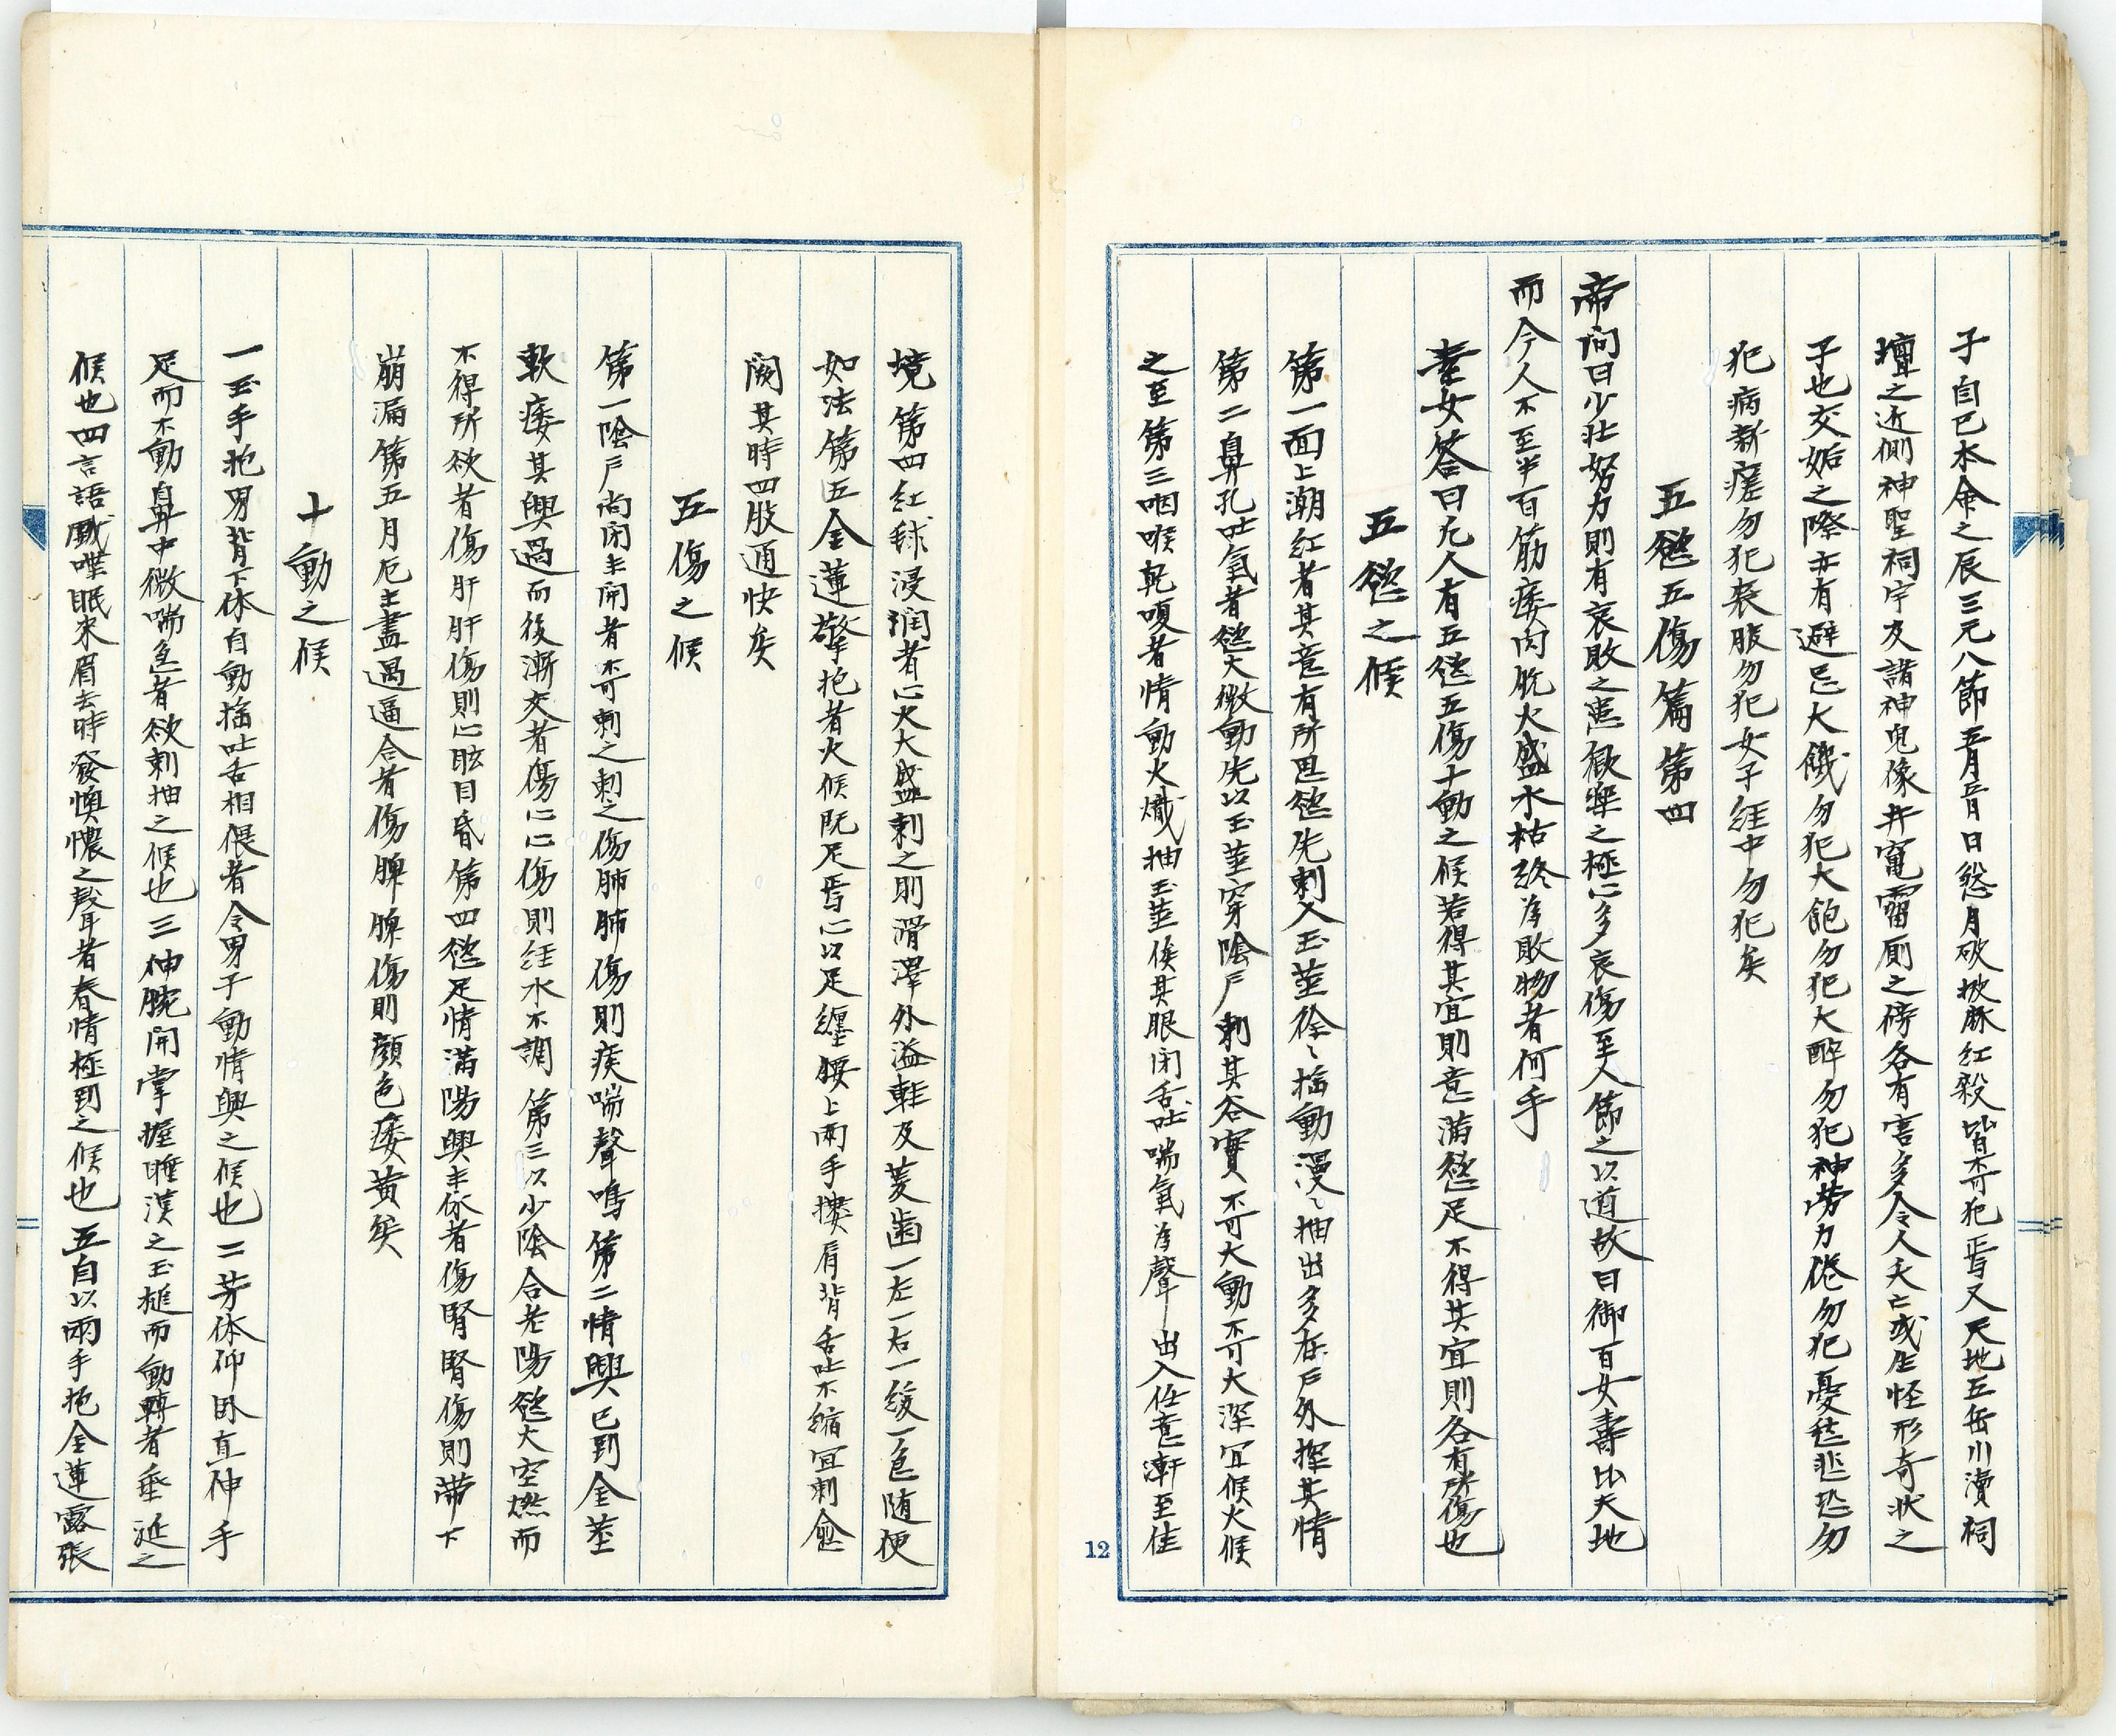 子自巳木金之辰三元八節五月五日慾月破披厥紅殺皆不可犯焉又天地五岳川瀆祠
壇之近側神聖祠宇及諸神鬼像井竈霤厠之傍各有害多令人夭亡或生怪形奇状之
子也交姤之際亦有避忌大饑勿犯大飽勿犯大醉勿犯神勞力倦勿犯憂愁悲恐勿
犯病新瘥勿犯衰服勿犯女子経中勿犯矣
五慾五傷篇第四
帝問曰少壮努力則有衰敗之患歓楽之極心多哀傷至人節之以道故曰御百女壽比天地
而今人不至半百筋痿肉脱火盛水枯終為敗物者何乎
素女答曰凡人有五慾五傷十動之候若得其宜則意満慾足不得其宜則各有所傷也
五慾之候
第一面上潮紅者其意有所思慾先刺入玉莖徐〻揺動漫〻抽出多在戸外探其情
第二鼻孔吐氣者慾火微動先以玉莖穿陰戸刺其谷實不可大動不可大深宜候火候
之至第三咽喉乾嗄者情動火熾抽玉莖俟其眼閉舌吐喘氣為聲出入任意漸至佳
12
境第四紅毬浸潤者心火大盛刺之則滑澤外溢軽及菱齒一左一右一緩一急随便
如法第五金蓮擎抱者火候既足焉心以足纏腰上兩手摟肩背舌吐不縮宜刺愈
闕其時四肢通快矣
五傷之候
第一陰戸尚閉未開者不可刺之刺之傷肺肺傷則痰喘聲鳴第二情興已到金莖
軟痿其興過而後漸交者傷心心傷則経水不調第三以少陰合老陽慾大空燃而
不得所欲者傷肝肝傷則心眩目昏第四慾足情満陽興未休者傷腎腎傷則帯下
崩漏第五月厄未盡過逼合者傷脾脾傷則顔色痿黄矣
十動之候
一玉手抱男背下体自動揺吐舌相偎者令男子動情興之候也二芳体仰臥直伸手
足而不動鼻中微喘急者欲刺抽之候也三伸腕開掌握睡漢之玉槌而動轉者垂涎之
候也四言語戯喋眠来眉去時發懊憹之聲者春情極到之候也五自以兩手抱金蓮露張